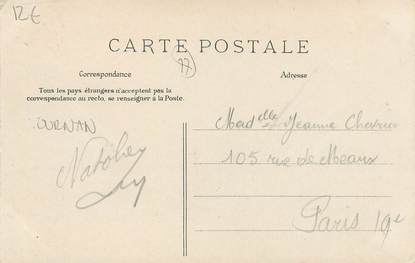 12€
CARTE POSTALE
77
Correspondance
Adresse
Tous les pays étrangers n'acceptent pas la
correspondance au recto, se renseigner à la Poste.
OURNAN
Madelle Jeanne
105 rue de Meaux
Paris 19e